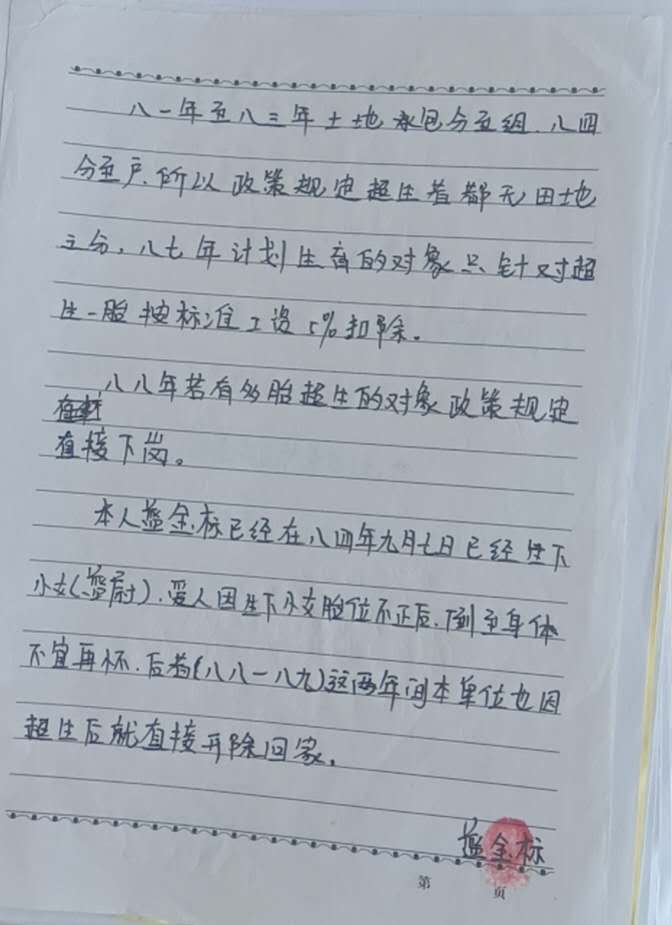 八一年至八三年土地承包分至组.八四
分至户.所以政策规定超生者都无田地
之分,八七年计划生育的对象只针对超
生一胎按标准工资5%扣除。
八八年若有多胎超生的对象政策规定
直接下岗。
本人蓝金标已经在八四年九月七日已经生下
小女(蓝尉).爱人因生下小女胎位不正后.倒至身体
不宜再怀.后为(八八一八九)这两年间本单位也因
超生后就直接开除回家.
蓝金标
第 页